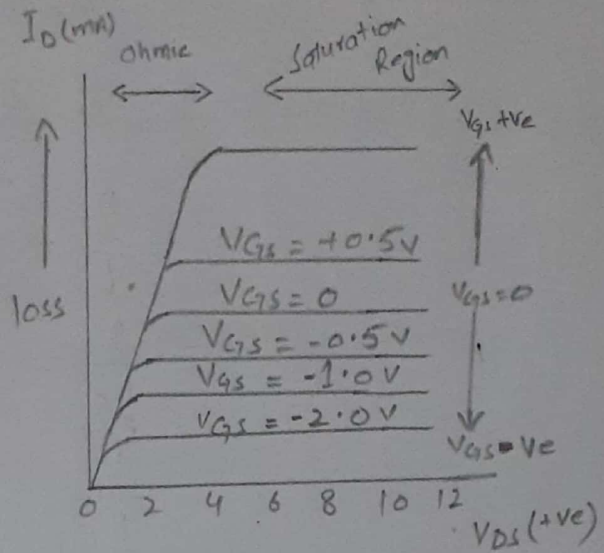 I_D (mA)
ohmic
Saturation
Region
V_GS +ve
V_GS = +0.5V
loss
V_GS = 0
V_GS = 0
V_GS = -0.5 V
V_GS = -1.0 V
V_GS = -2.0 V
V_GS - ve
0 2 4 6 8 10 12
V_DS (+ve)